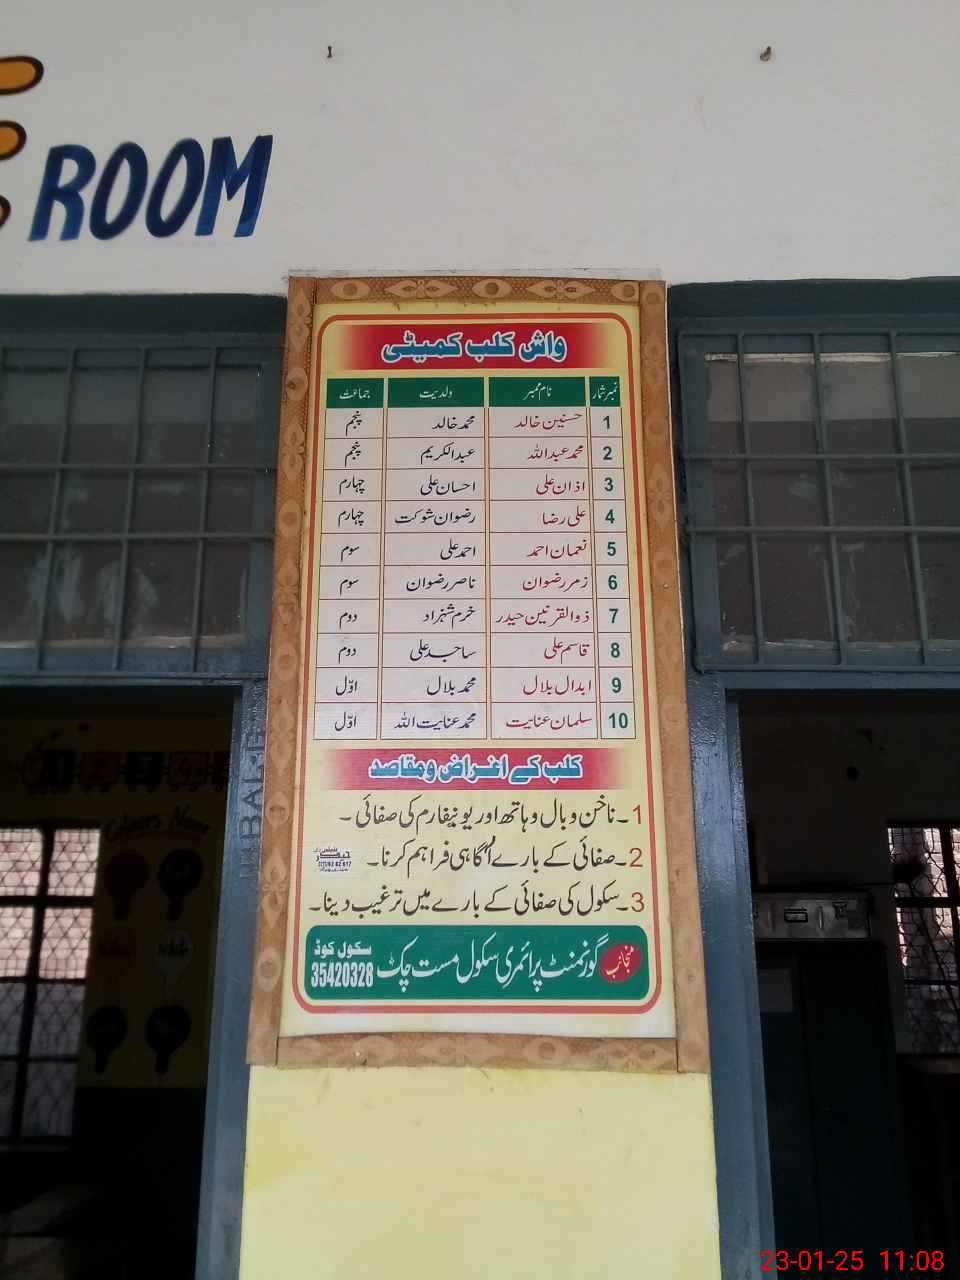 ROOM
واش کلب کمیٹی
نمبر شمار نام ممبر ولدیت جماعت
1 حسنین خالد محمد خالد پنجم
2 محمد عبداللہ عبدالکریم پنجم
3 اذان علی احسان علی چہارم
4 علی رضا رضوان شوکت چہارم
5 نعمان احمد احمد علی سوم
6 زمر رضوان ناصر رضوان سوم
7 ذوالقرنین حیدر خرم شہزاد دوم
8 قاسم علی ساجد علی دوم
9 ابدال بلال محمد بلال اوّل
10 سلمان عنایت محمد عنایت اللہ اوّل
کلب کے اغراض و مقاصد
1۔ ناخن و بال و ہاتھ اور یونیفارم کی صفائی ۔
2۔ صفائی کے بارے اُگاہی فراہم کرنا۔
3۔ سکول کی صفائی کے بارے میں ترغیب دینا۔
منجانب گورنمنٹ پرائمری سکول مست چک سکول کوڈ 35420328
Colour's Name
23-01-25 11:08